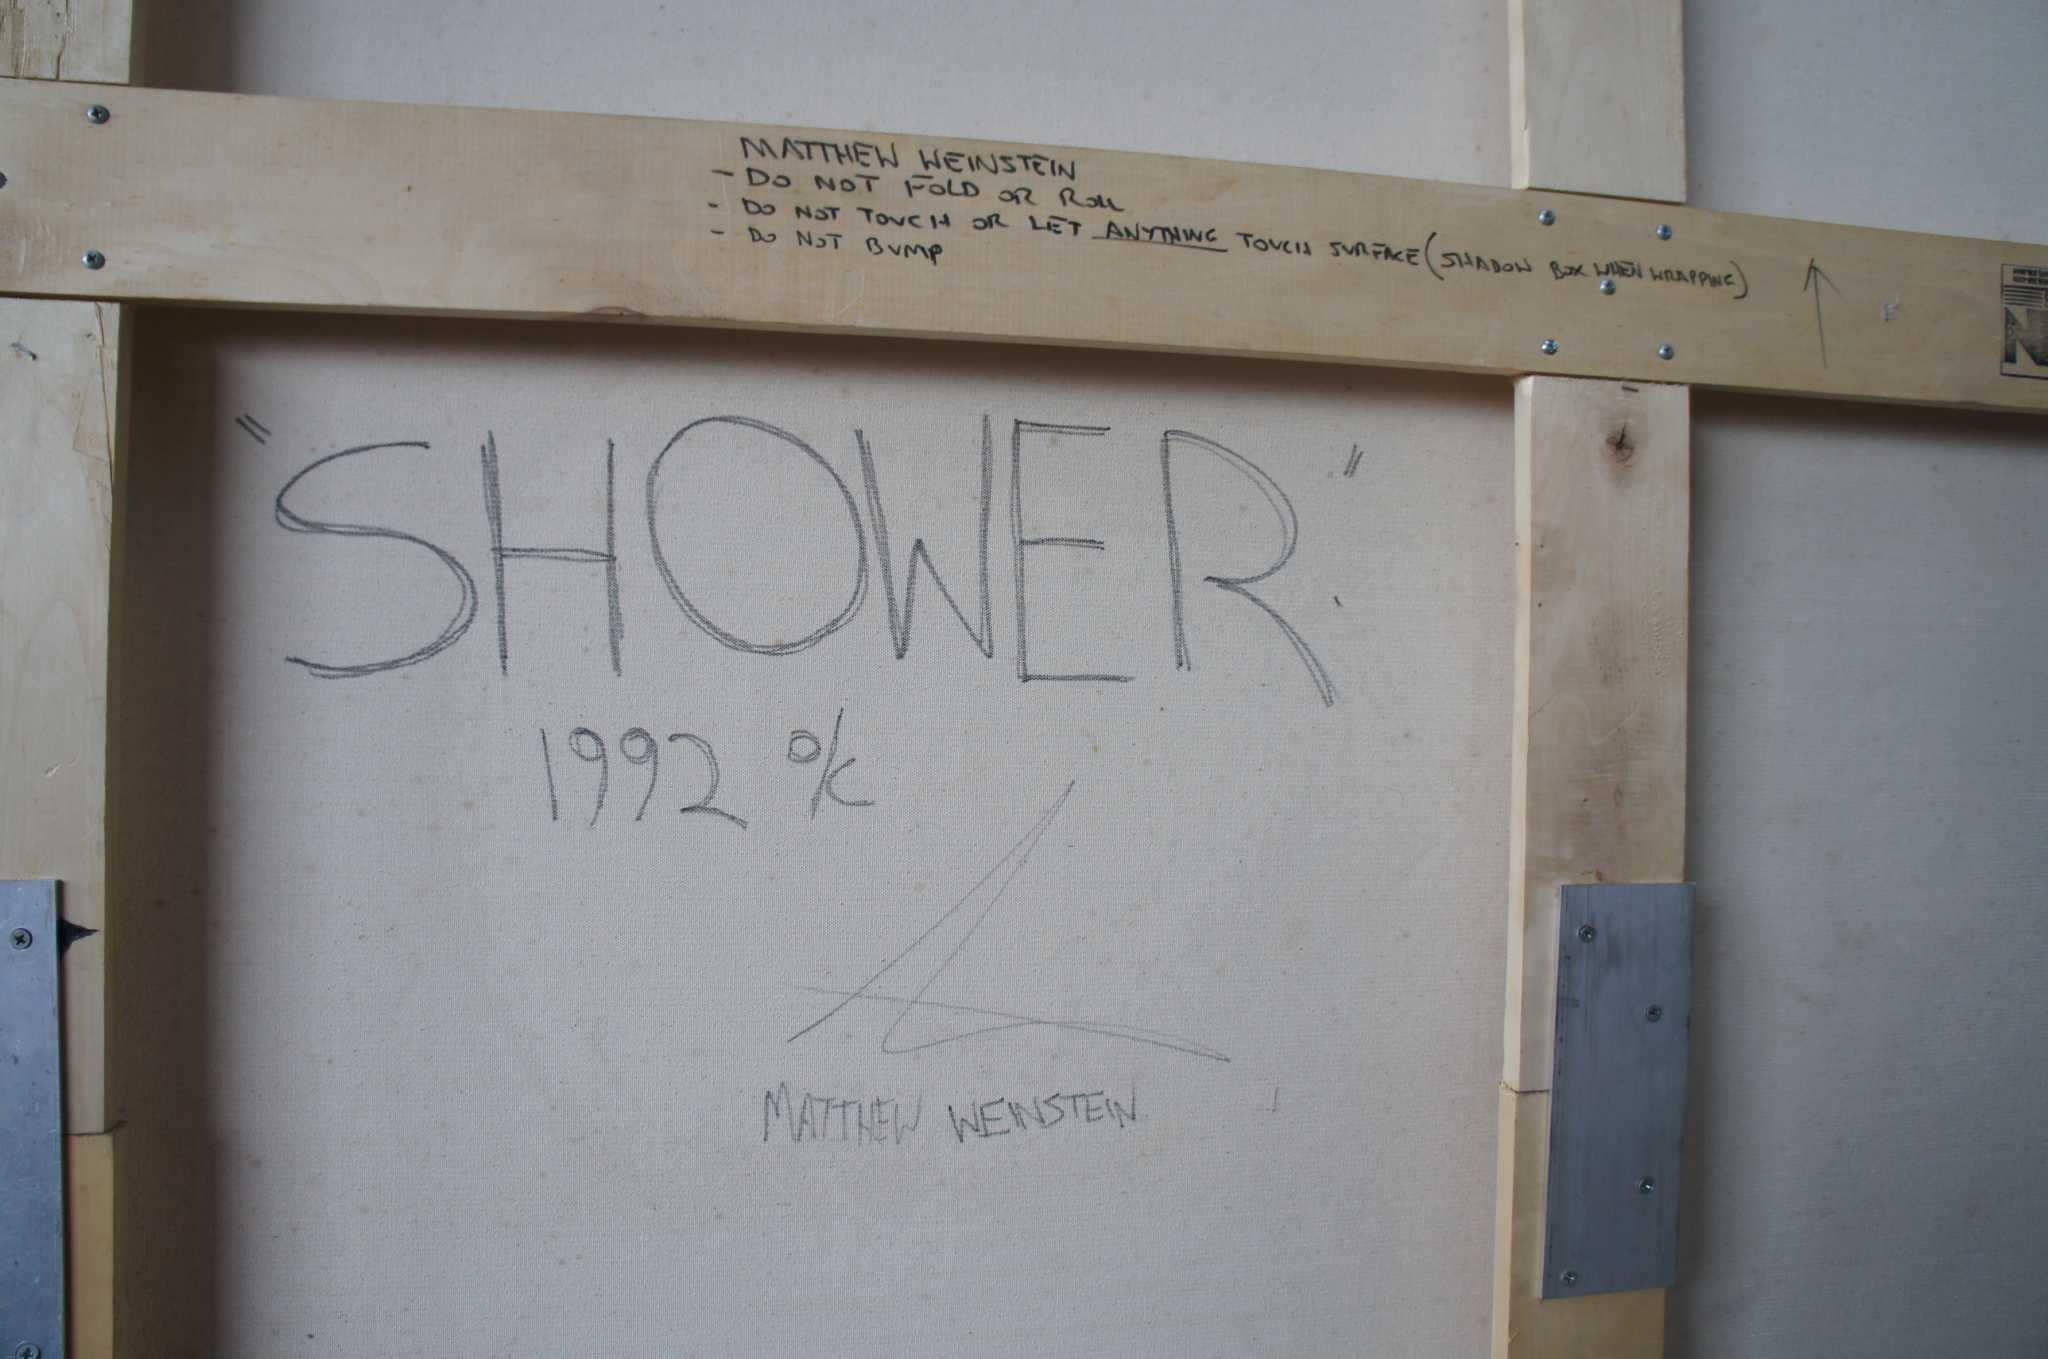 MATTHEW WEINSTEIN
- DO NOT FOLD OR ROLL
- DO NOT TOUCH OR LET ANYTHING TOUCH SURFACE (SHADOW BOX WHEN WRAPPING)
- DO NOT BUMP
"SHOWER"
1992 o/c
MATTHEW WEINSTEIN